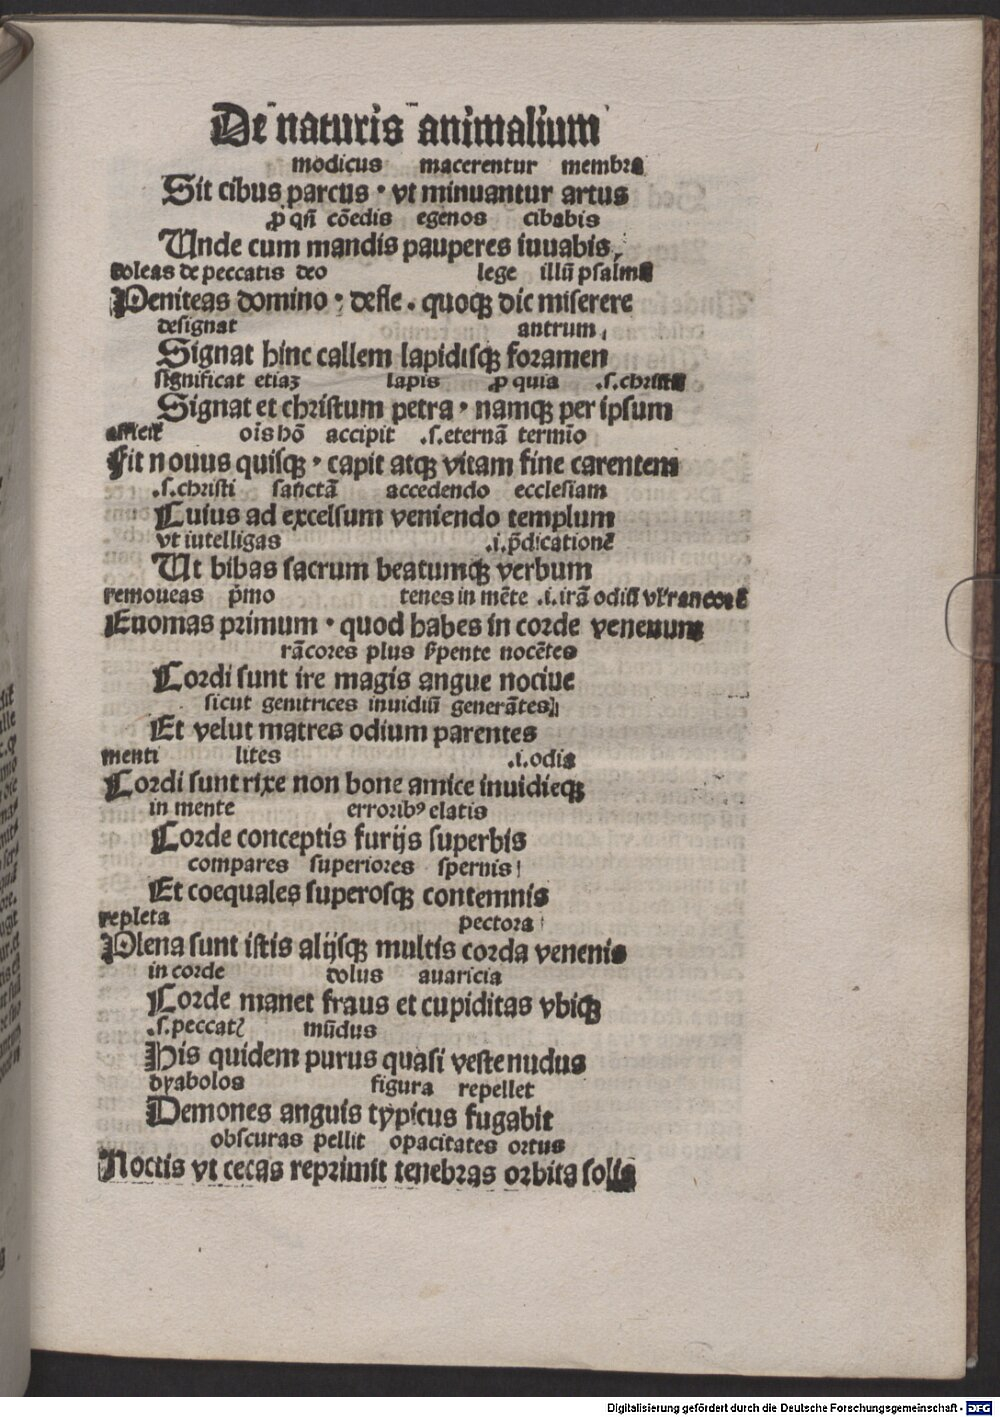 De naturis animalium
modicus macerentur membra
Sit cibus parcus · vt minuantur artus
ꝓ qñ cōedis egenos cibabis
Unde cum mandis pauperes iuuabis
doleas de peccatis deo lege illū psalmū
Peniteas domino · defle . quoqꝫ dic miserere
designat antrum
Signat hinc callem lapidisqꝫ foramen
significat etiaꝫ lapis ꝓ quia .s. christū
Signat et christum petra · namqꝫ per ipsum
oīs hō accipit .s. eternā termīo
Fit nouus quisqꝫ · capit atqꝫ vitam fine carentem
.s. christi sanctā accedendo ecclesiam
Cuius ad excelsum veniendo templum
vt iutelligas .i. p̄dicationē
Ut bibas sacrum beatumqꝫ verbum
remoueas p̄mo tenes in mēte .i. irā odiū vl' rancorē
Euomas primum · quod habes in corde venenum
rācores plus s̄pente nocētes
Cordi sunt ire magis angue nociue
sicut genitrices inuidiū generātes
Et velut matres odium parentes
menti lites .i. odia
Cordi sunt rixe non bone amice inuidieqꝫ
in mente erroribꝰ elatis
Corde conceptis furijs superbis
compares superiores spernis
Et coequales superosqꝫ contemnis
repleta pectora
Plena sunt istis alijsqꝫ multis corda venenis
in corde dolus auaricia
Corde manet fraus et cupiditas vbiqꝫ
.s. peccatꝭ mūdus
His quidem purus quasi veste nudus
dyabolos figura repellet
Demones anguis typicus fugabit
obscuras pellit opacitates ortus
Noctis vt cecas reprimit tenebras orbita solis
Digitalisierung gefördert durch die Deutsche Forschungsgemeinschaft - DFG